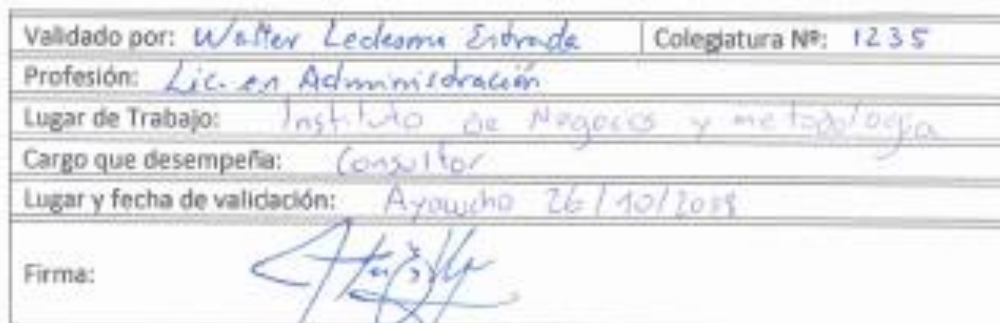 Validado por: Walter Ledesma Estrada Colegiatura Nº: 1235
Profesión: Lic. en Administración
Lugar de Trabajo: Instituto de Negocios y metodología
Cargo que desempeña: Consultor
Lugar y fecha de validación: Ayacucho 26/10/2018
Firma: